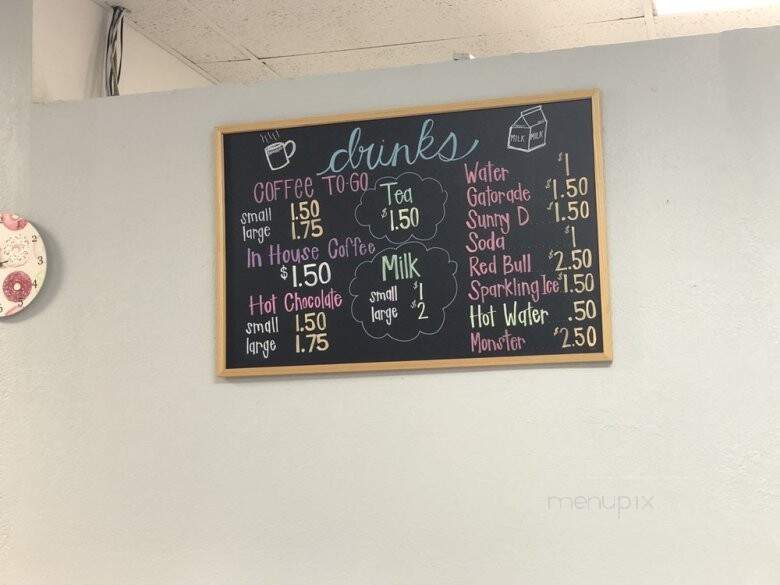 drinks
COFFEE TO-GO
small 1.50
large 1.75
In House Coffee
$1.50
Hot Chocolate
small 1.50
large 1.75
Tea
$1.50
Milk
small $1
large $2
MILK MILK
Water $1
Gatorade $1.50
Sunny D $1.50
Soda $1
Red Bull $2.50
Sparkling Ice $1.50
Hot Water .50
Monster $2.50
2
3
4
5
menupix